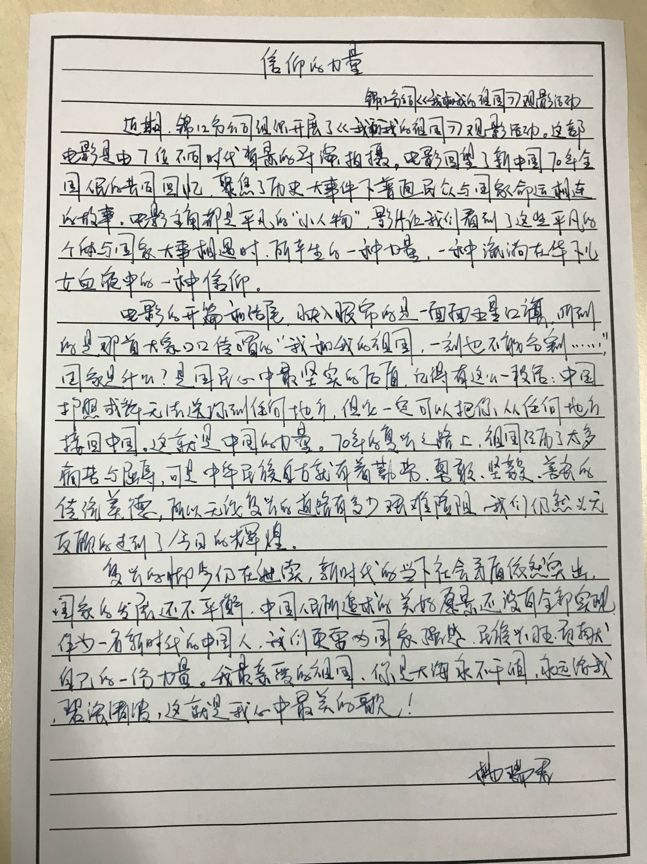 信仰的力量
锦江分公司《我和我的祖国》观影活动
近期,锦江分公司组织开展了《我和我的祖国》观影活动。这部
电影是由7位不同时代背景的导演拍摄。电影回望了新中国70年全
国人民的共同回忆,聚焦了历史大事件下普通民众与国家命运相连
的故事。电影主角都是平凡的“小人物”,影片让我们看到了这些平凡的
个体与国家大事相遇时,所产生的一种力量,一种流淌在华夏儿
女血液中的一种信仰。
电影的开篇和结尾,映入眼帘的是一面面五星红旗,听到
的是那首大家口口传唱的“我和我的祖国,一刻也不能分割……”,
国家是什么?是国民心中最坚实的后盾,记得有这么一段话:中国
护照或许无法送你到任何地方,但它一定可以把你从任何地方
接回中国。这就是中国的力量。70年的复兴之路上,祖国经历了太多
病苦与屈辱,可是中华民族自古就有着勤劳、勇敢、坚毅、善良的
传统美德,所以无论复兴的道路有多少艰难险阻,我们仍然义无
反顾的走到了今日的辉煌。
复兴的脚步仍在继续,新时代的当下社会矛盾依然突出,
国家的发展还不平衡,中国人民所追求的美好愿景还没有全部实现
作为一名新时代的中国人,我们更需为国家强盛、民族兴旺贡献
自己的一份力量。我最亲爱的祖国,你是大海永不干涸,永远给我
,碧浪清波,这就是我心中最美的歌!